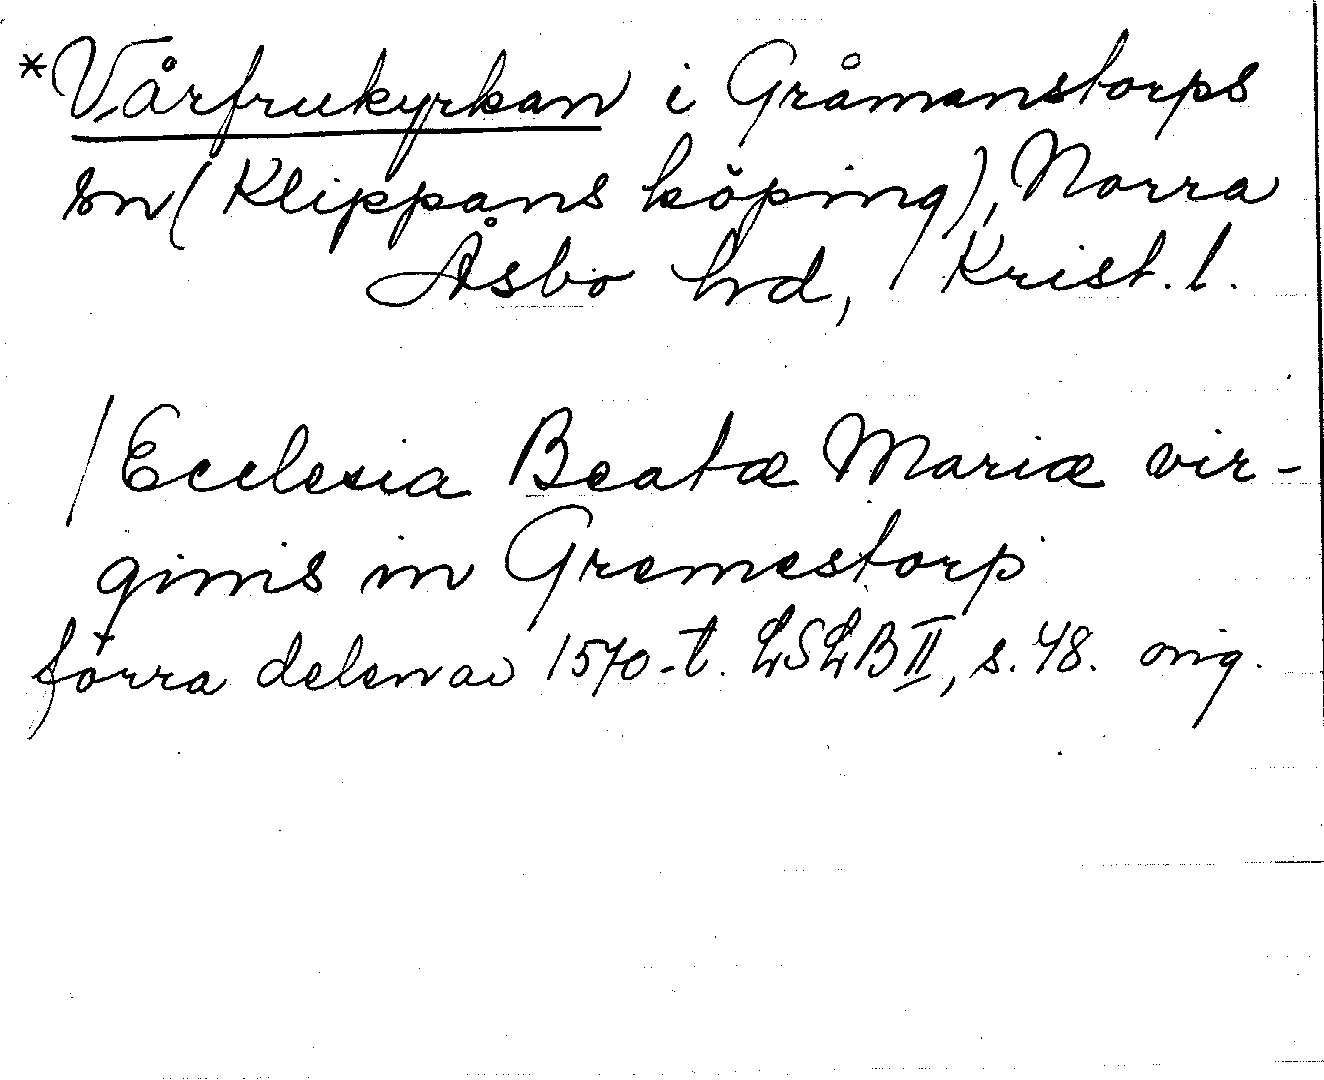 *Vårfrukyrkan i Gråmanstorps
sn (Klippans köping), Norra
Åsbo hrd, Krist. l.
/Ecclesia Beatæ Mariæ vir-
ginis in Gremestorp
förra delen av 1570-t. LSLB II, s. 48. orig.